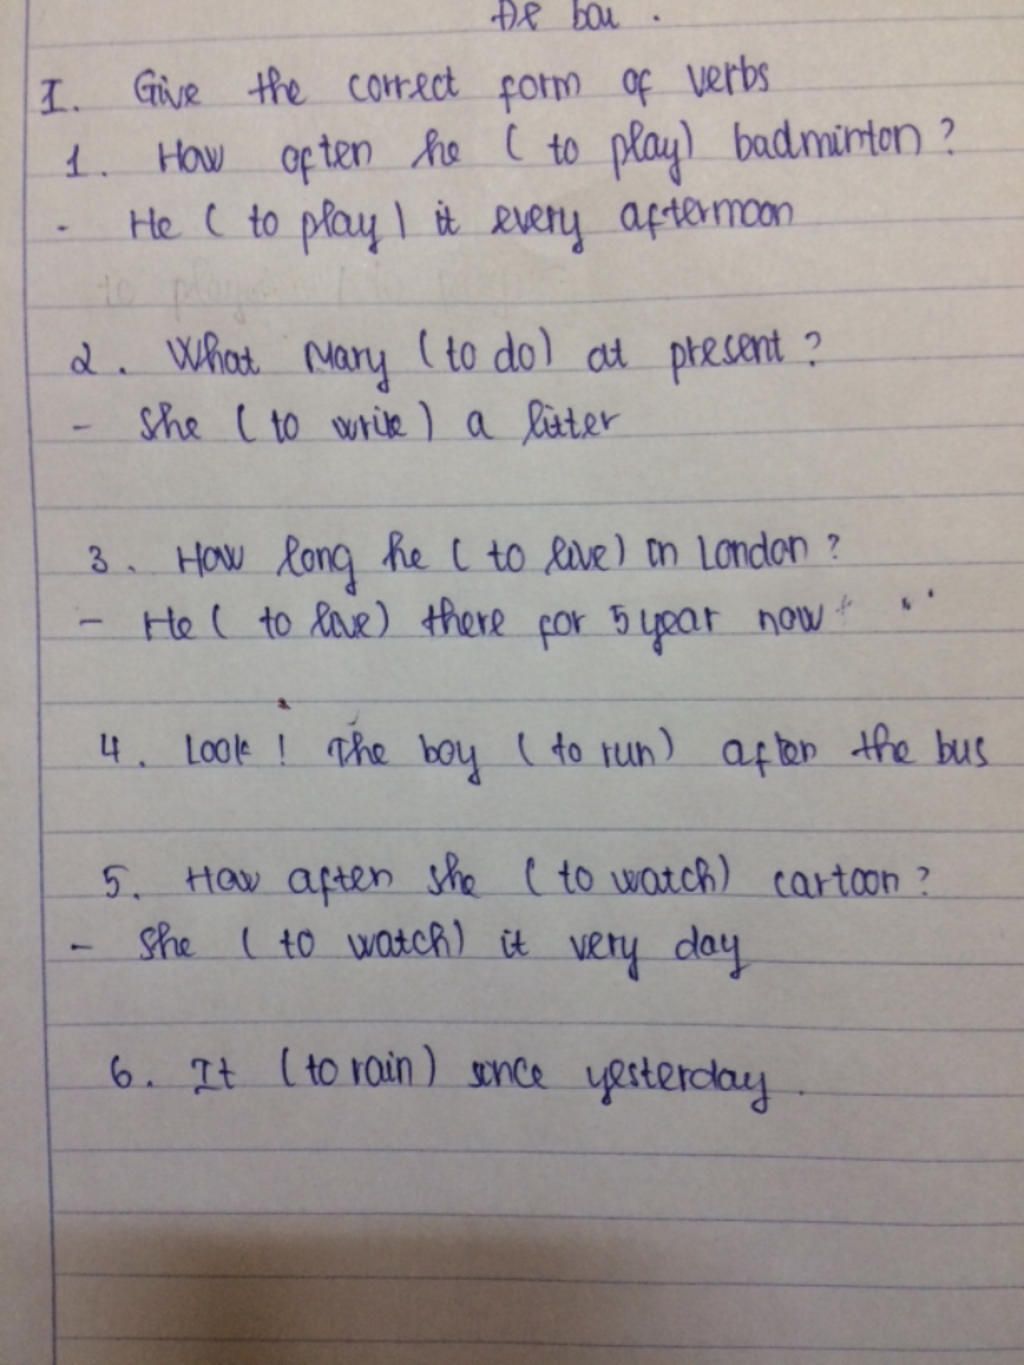 Đề bài .
I. Give the correct form of verbs
1. How often he ( to play) badminton ?
- He ( to play ) it every afternoon
2 . What Mary ( to do) at present ?
- She ( to write ) a litter
3 . How long he ( to live) in London ?
- He ( to live) there for 5 year now
4 . Look ! The boy ( to run ) after the bus
5 . How often she ( to watch) cartoon ?
- She ( to watch) it very day
6 . It ( to rain ) since yesterday .